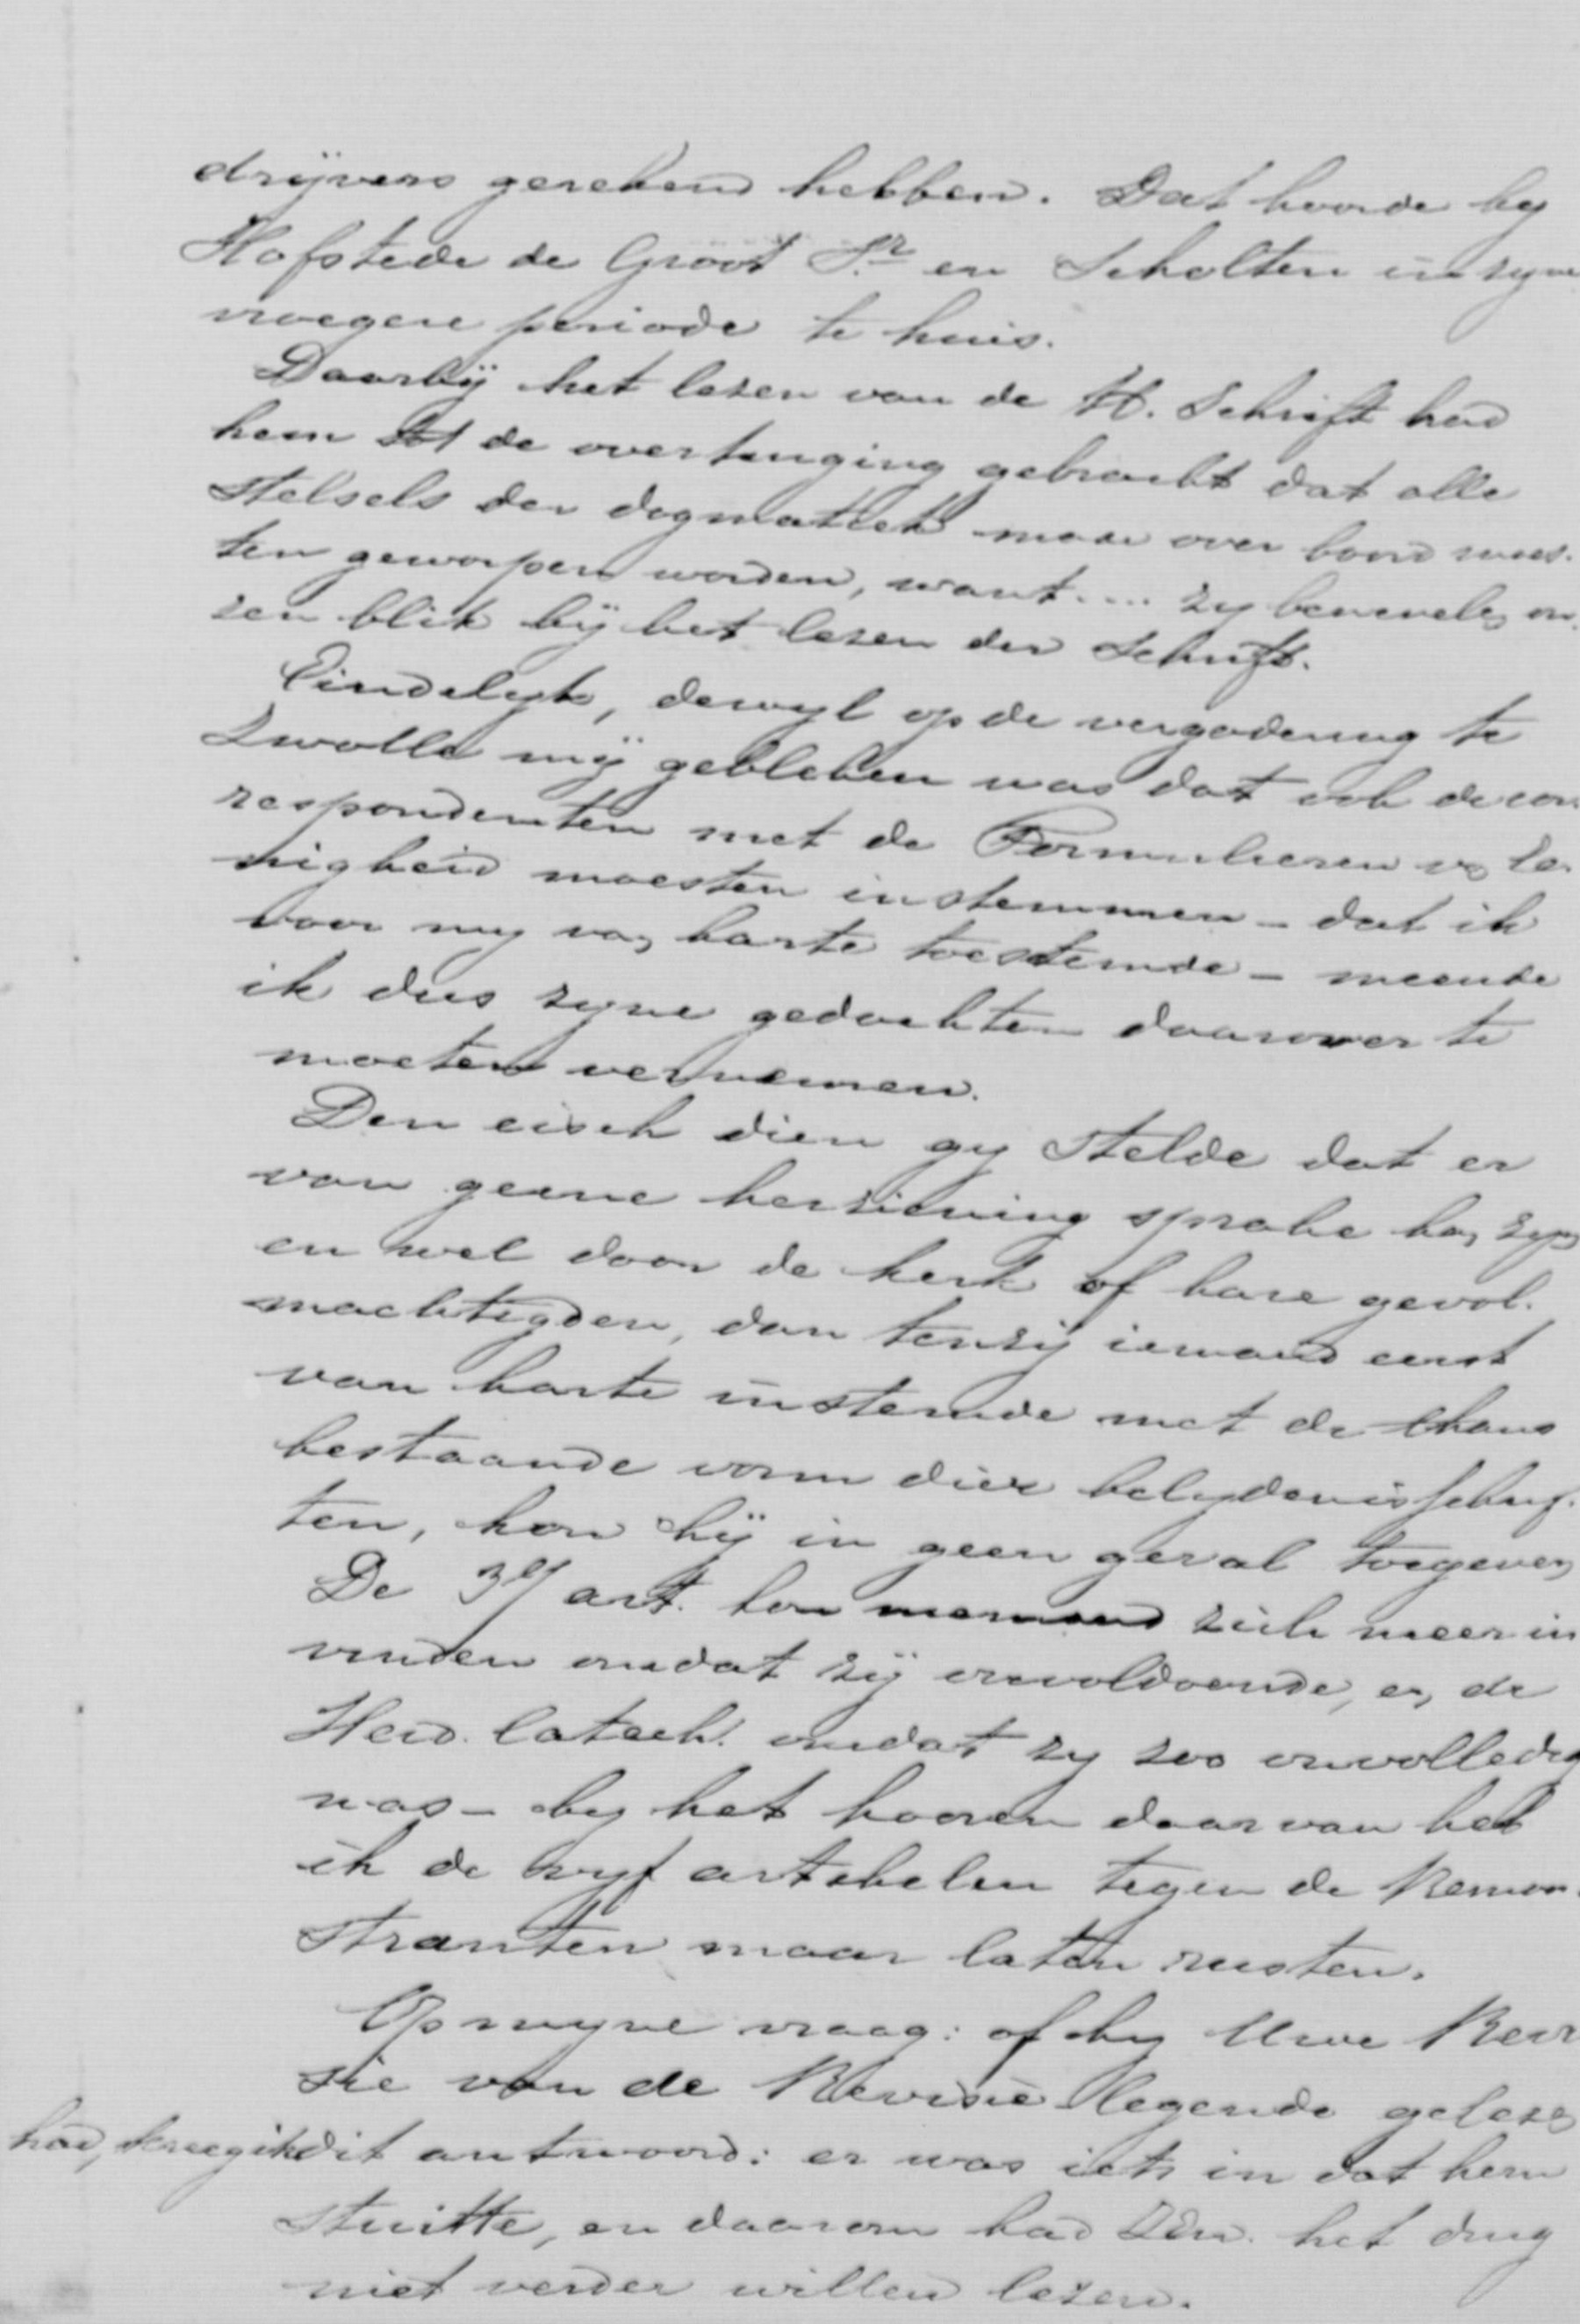 drijvers gerekend hebben. Dat hoorde by
Hofstede de Groot Sr. en Scholten in zyne
vroegere periode te huis.
Daarbij het lezen van de H. Schrift had
hem tot de overtuiging gebracht dat alle
stelsels der dogmatiek maar over boord moes-
ten geworpen worden, want.... zy benevelen on-
zen blik bij het lezen der Schrift.
Eindelyk, dewyl op de vergadering te
Zwolle mij gebleken was dat ook de cor-
respondenten met de Formulieren v. Ee-
nigheid moesten instemmen - dat ik
voor my van harte toestemde - meende
ik dus zyne gedachten daarover te
moeten vernemen.
Den eisch dien gy stelde dat er
van geene herziening sprake kan zyn
en wel door de kerk of hare gevol-
machtigden, dan tenzij iemand eerst
van harte instemde met de thans
bestaande vorm dier belydenisschrif-
ten, kon hij in geen geval toegeven
De 37 art. kon niemand zich meer in
vinden omdat zij onvoldoende, en de
Heid. Catech. omdat zy zoo onvolledig
was - by het hooren daarvan heb
ik de vyf artikelen tegen de Remon-
stranten maar laten rusten.
Op myne vraag: of hy Uwe Revi
sie van de Revisie-legende gelezen
had, kreeg ik dit antwoord: er was iets in dat hem
stuitte, en daarom had ZEw. het ding
niet verder willen lezen.